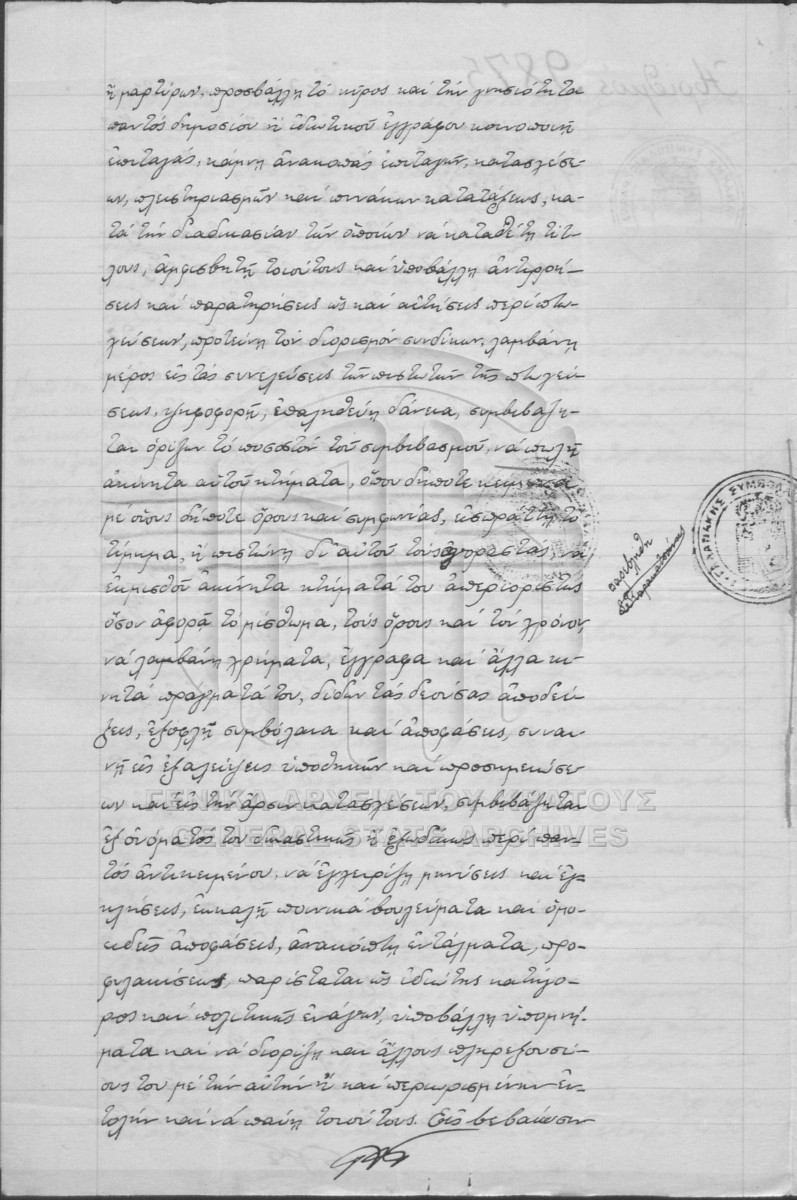 ἢ μαρτύρων, προσβάλλῃ τὸ κῦρος καὶ τὴν γνησιότητα
παντὸς δημοσίου ἢ ἰδιωτικοῦ ἐγγράφου κοινοποιῇ
ἐπιταγάς, κάμνῃ ἀνακοπὰς ἐπιταγῶν, κατασχέσε-
ων, πλειστηριασμῶν καὶ πινάκων κατατάξεως, κα-
τὰ τὴν διαδικασίαν τῶν ὁποίων νὰ καταθέτῃ τίτ-
λους, ἀμφισβητῇ τοιούτους καὶ ὑποβάλλῃ ἀντιρρή-
σεις καὶ παρατηρήσεις ὡς καὶ αἰτήσεις περὶ πτω-
χεύσεων, προτείνῃ τὸν διορισμὸν συνδίκων, λαμβάνῃ
μέρος εἰς τὰς συνελεύσεις τῶν πιστωτῶν τῆς πτωχεύ-
σεως, ψηφοφορῇ, ἐπαληθεύῃ δάνεια, συμβιβάζη-
ται ὁρίζων τὸ ποσοστὸν τοῦ συμβιβασμοῦ, νὰ πωλῇ
ἀκίνητα αὐτοῦ κτήματα, ὅπου δήποτε κείμενα
μὲ οἵους δήποτε ὅρους καὶ συμφωνίας, εἰσπράττῃ τὸ
τίμημα, ἢ πιστώνῃ δι' αὐτοῦ τοὺς ἀγοραστάς, νὰ
ἐκμισθοῖ ἀκίνητα κτήματά του ἀπεριορίστως
ὅσον ἀφορᾷ τὸ μίσθωμα, τοὺς ὅρους καὶ τὸν χρόνον,
νὰ λαμβάνῃ χρήματα, ἔγγραφα καὶ ἄλλα κι-
νητὰ πράγματά του, δίδων τὰς δεούσας ἀποδεί-
ξεις, ἐξοφλῇ συμβόλαια καὶ ἀποφάσεις, συναι-
νῇ εἰς ἐξαλείψεις ὑποθηκῶν καὶ προσημειώσε-
ων καὶ εἰς τὴν ἄρσιν κατασχέσεων, συμβιβάζηται
ἐξ ὀνόματός του δικαστικῶς ἢ ἐξωδίκως περὶ παν-
τὸς ἀντικειμένου, νὰ ἐγχειρίζῃ μηνύσεις καὶ ἐγ-
κλήσεις, ἐκκαλῇ ποινικὰ βουλεύματα καὶ ὁμο-
ειδεῖς ἀποφάσεις, ἀνακόπτῃ ἐντάλματα, προ-
φυλακίσεως, παρίσταται ὡς ἰδιώτης κατήγο-
ρος καὶ πολιτικῶς ἐνάγων, ὑποβάλλῃ ὑπομνή-
ματα καὶ νὰ διορίζῃ καὶ ἄλλους πληρεξουσί-
ους του μὲ τὴν αὐτὴν ἢ καὶ περιωρισμένην ἐν-
τολὴν καὶ νὰ παύῃ τοιούτους. Εἰς βεβαίωσιν
ΓΕΝΙΚΑ ΑΡΧΕΙΑ ΤΟΥ ΚΡΑΤΟΥΣ
GENERAL STATE ARCHIVES